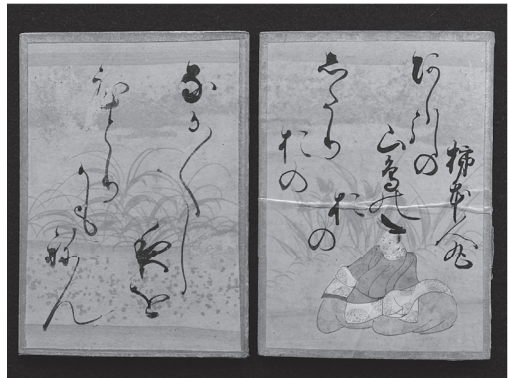 柿本人丸
阿し引の
山鳥乃
おの
志たり
おの
なか〳〵し
夜を
ひとり
かも
祢ん